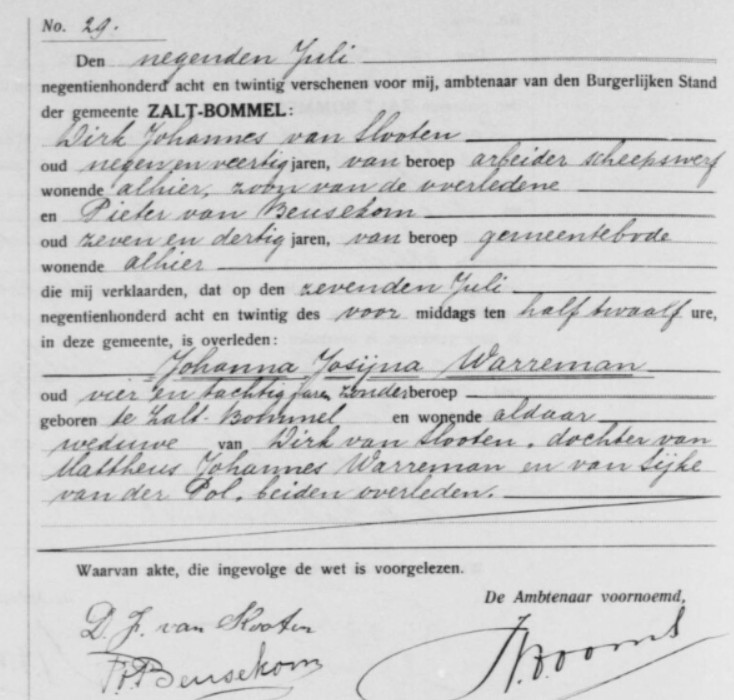 No. 29.
Den negenden Juli
negentienhonderd acht en twintig verschenen voor mij, ambtenaar van den Burgerlijken Stand
der gemeente ZALT-BOMMEL:
Dirk Johannes van Slooten
oud negen en veertig jaren, van beroep arbeider scheepswerf
wonende alhier, zoon van de overledene
en Pieter van Beusekom
oud zeven en dertig jaren, van beroep gemeentebode
wonende alhier
die mij verklaarden, dat op den zevenden Juli
negentienhonderd acht en twintig des voor middags ten half twaalf ure,
in deze gemeente, is overleden:
Johanna Josijna Warreman
oud vier en tachtig jaren, zonder beroep
geboren te Zalt-Bommel en wonende aldaar
weduwe van Dirk van Slooten, dochter van
Mattheus Johannes Warreman en van Sijke
van der Pol, beiden overleden.
Waarvan akte, die ingevolge de wet is voorgelezen.
De Ambtenaar voornoemd,
D. J. van Slooten
Beusekom